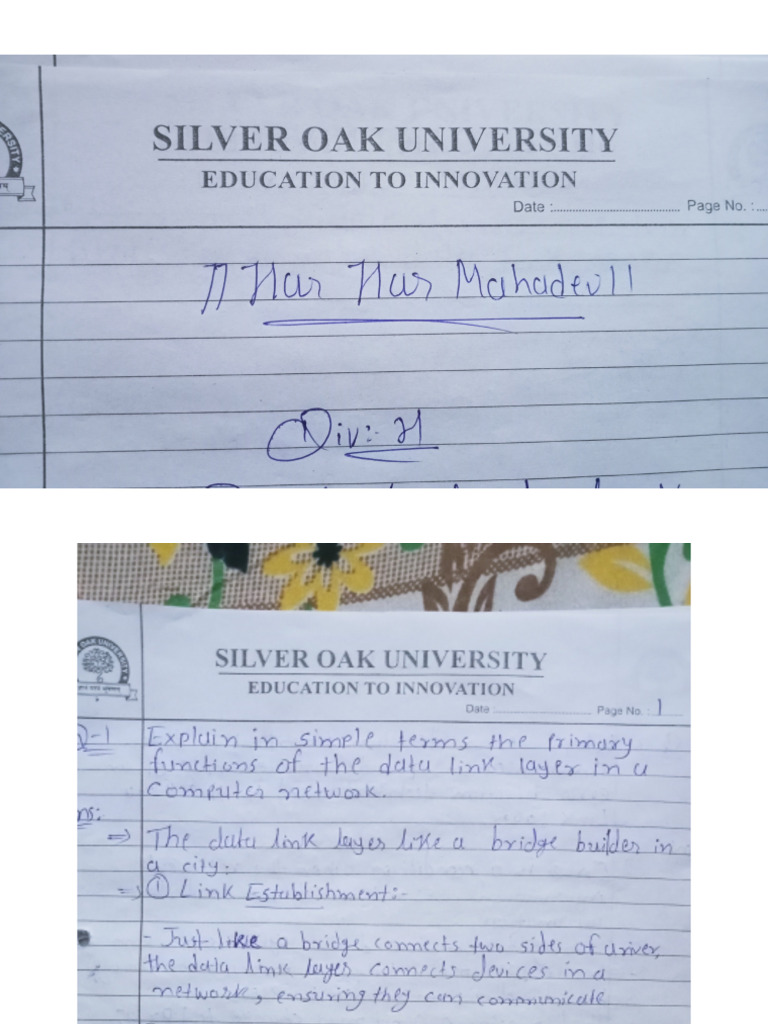 ERSITY
SILVER OAK UNIVERSITY
EDUCATION TO INNOVATION
Date :........................................ Page No. :....
|| Har Har Mahadev ||
Div:- H
OAK UNIVERSITY
SILVER OAK UNIVERSITY
EDUCATION TO INNOVATION
Date ........................ Page No. : 1
Q-1 Explain in simple terms the primary
functions of the data link layer in a
Computer network.
ns:
⇒ The data link layer like a bridge builder in
a city.
⇒ ① Link Establishment:-
- Just like a bridge connects two sides of a river,
the data link layer connects devices in a
network, ensuring they can communicate